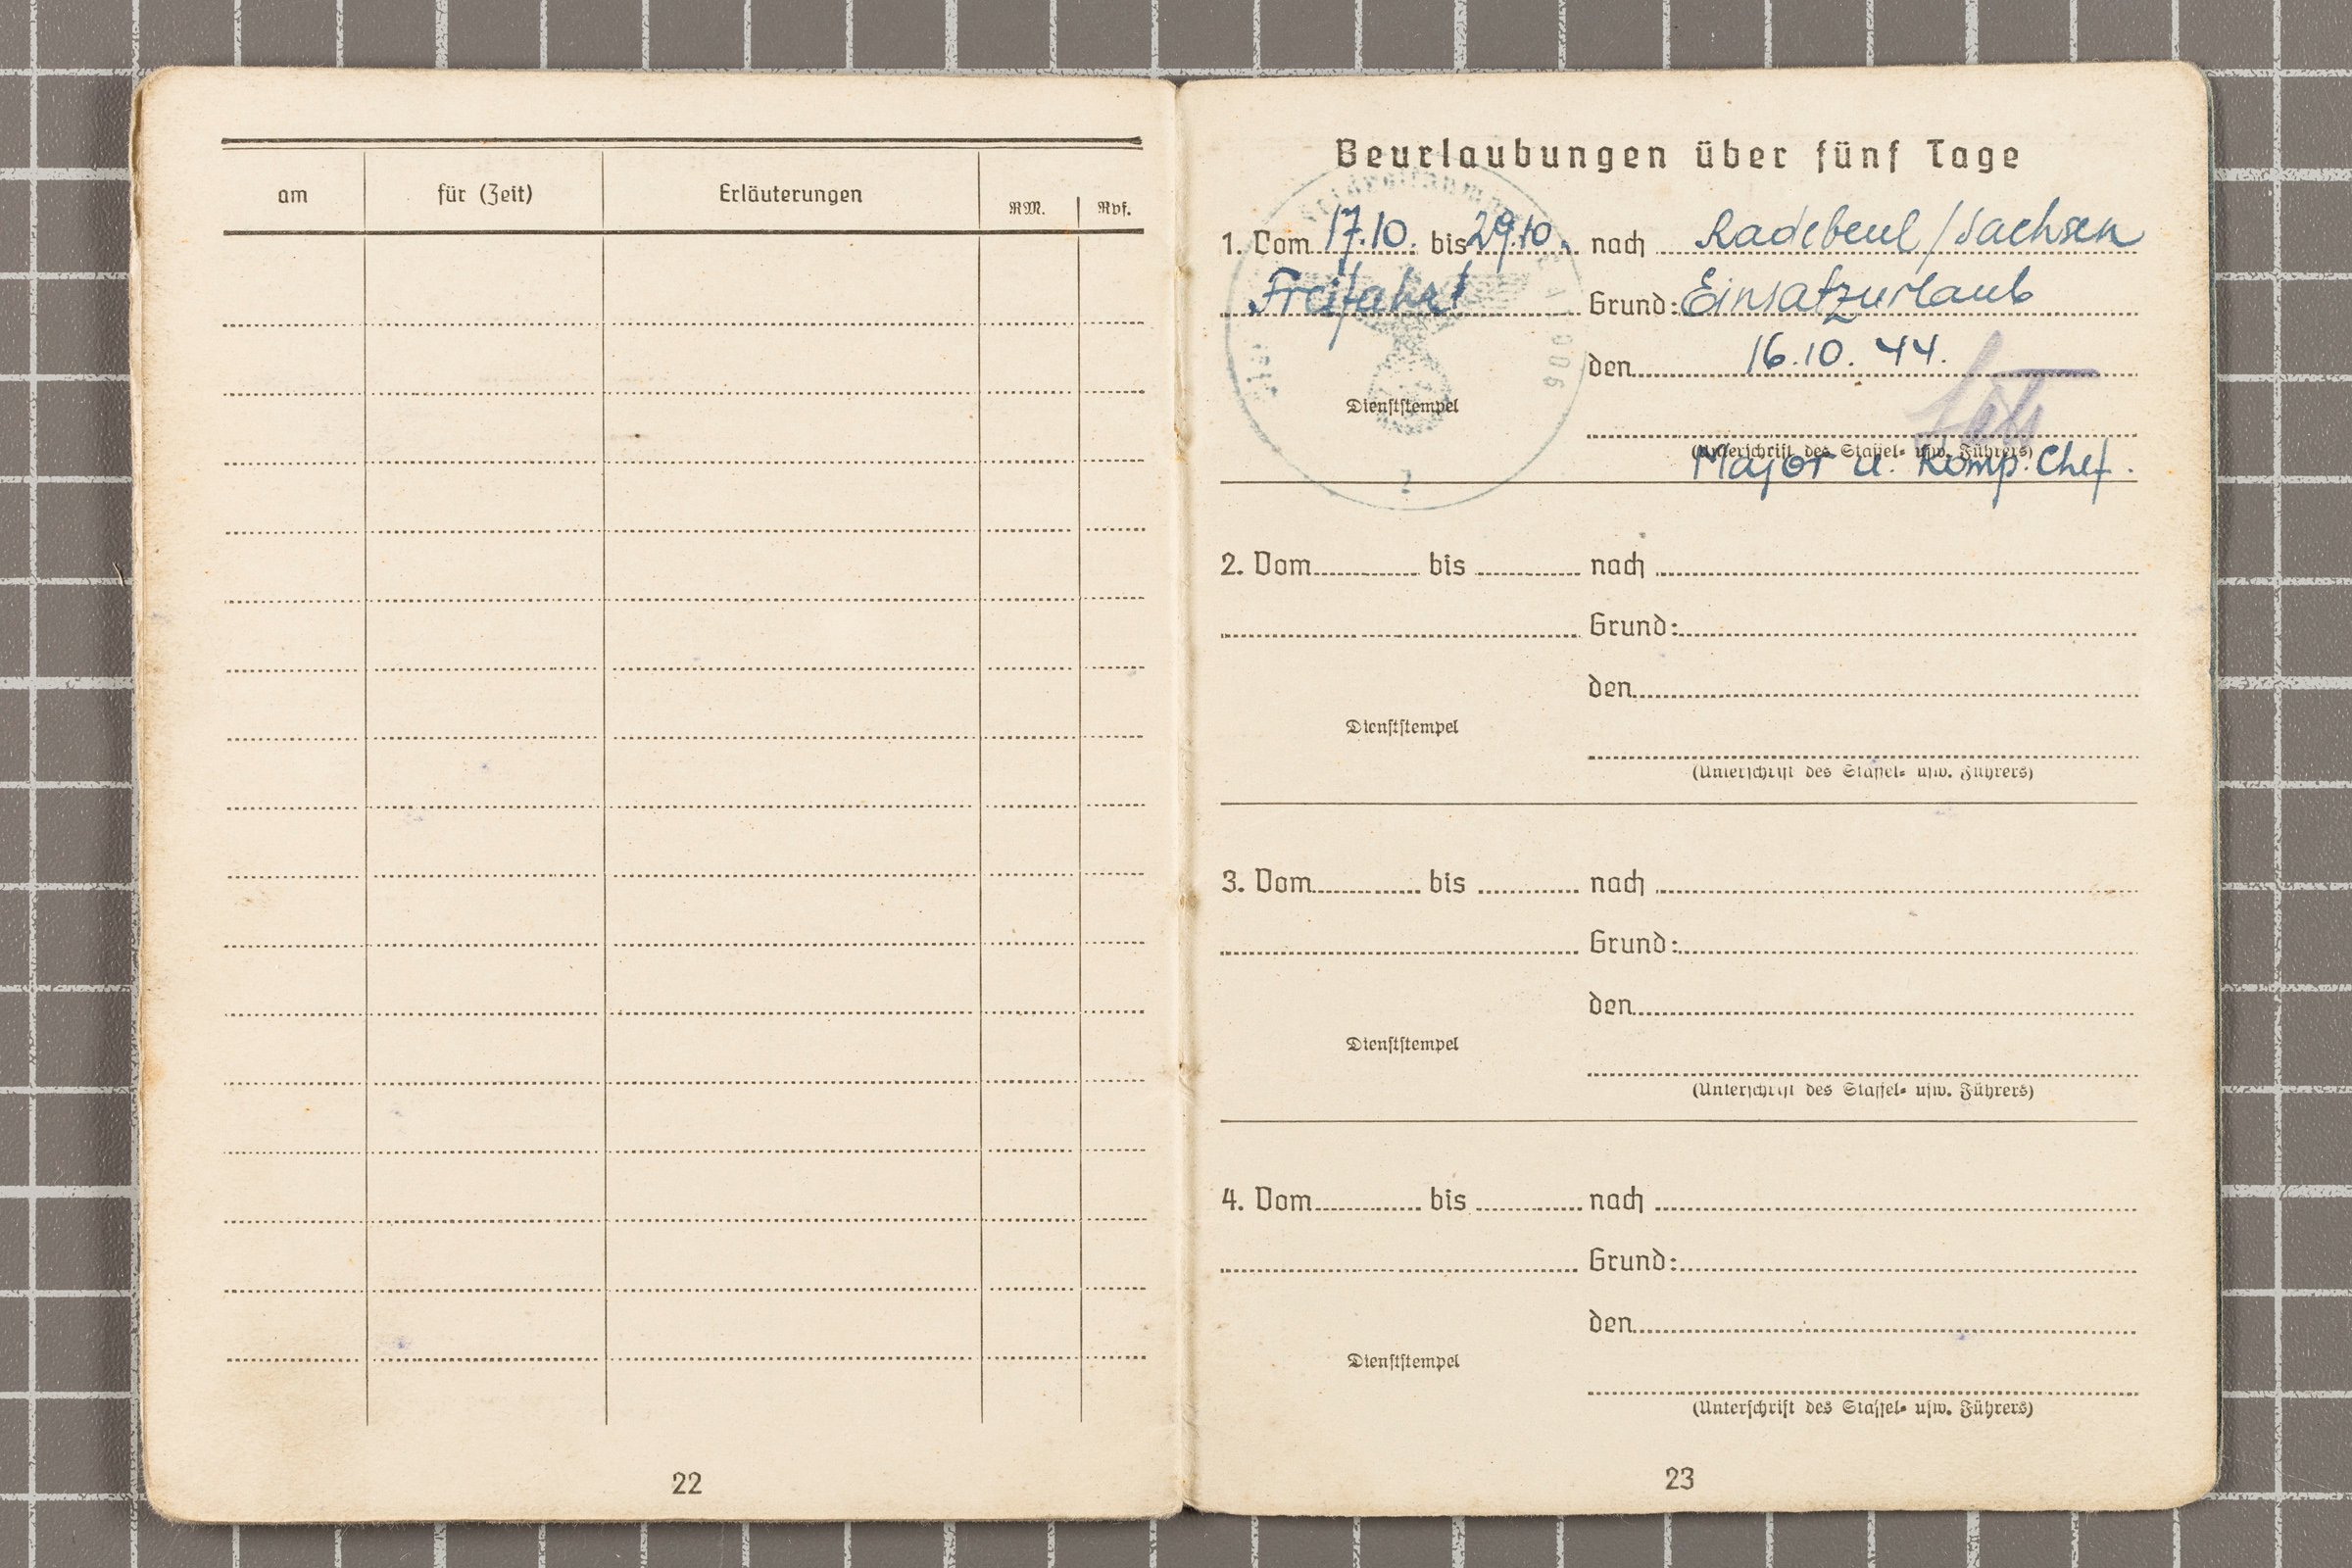 am für (Zeit) Erläuterungen RM. Rpf.
22
Beurlaubungen über fünf Tage
1. Vom 17.10. bis 29.10. nach Radebeul/Sachsen
Freifahrt Grund: Einsatzurlaub
den 16.10.44.
Dienststempel
(Unterschrift des Staffel- usw. Führers)
Major u. Komp. Chef.
2. Vom bis nach
Grund:
den
Dienststempel
(Unterschrift des Staffel- usw. Führers)
3. Vom bis nach
Grund:
den
Dienststempel
(Unterschrift des Staffel- usw. Führers)
4. Vom bis nach
Grund:
den
Dienststempel
(Unterschrift des Staffel- usw. Führers)
23